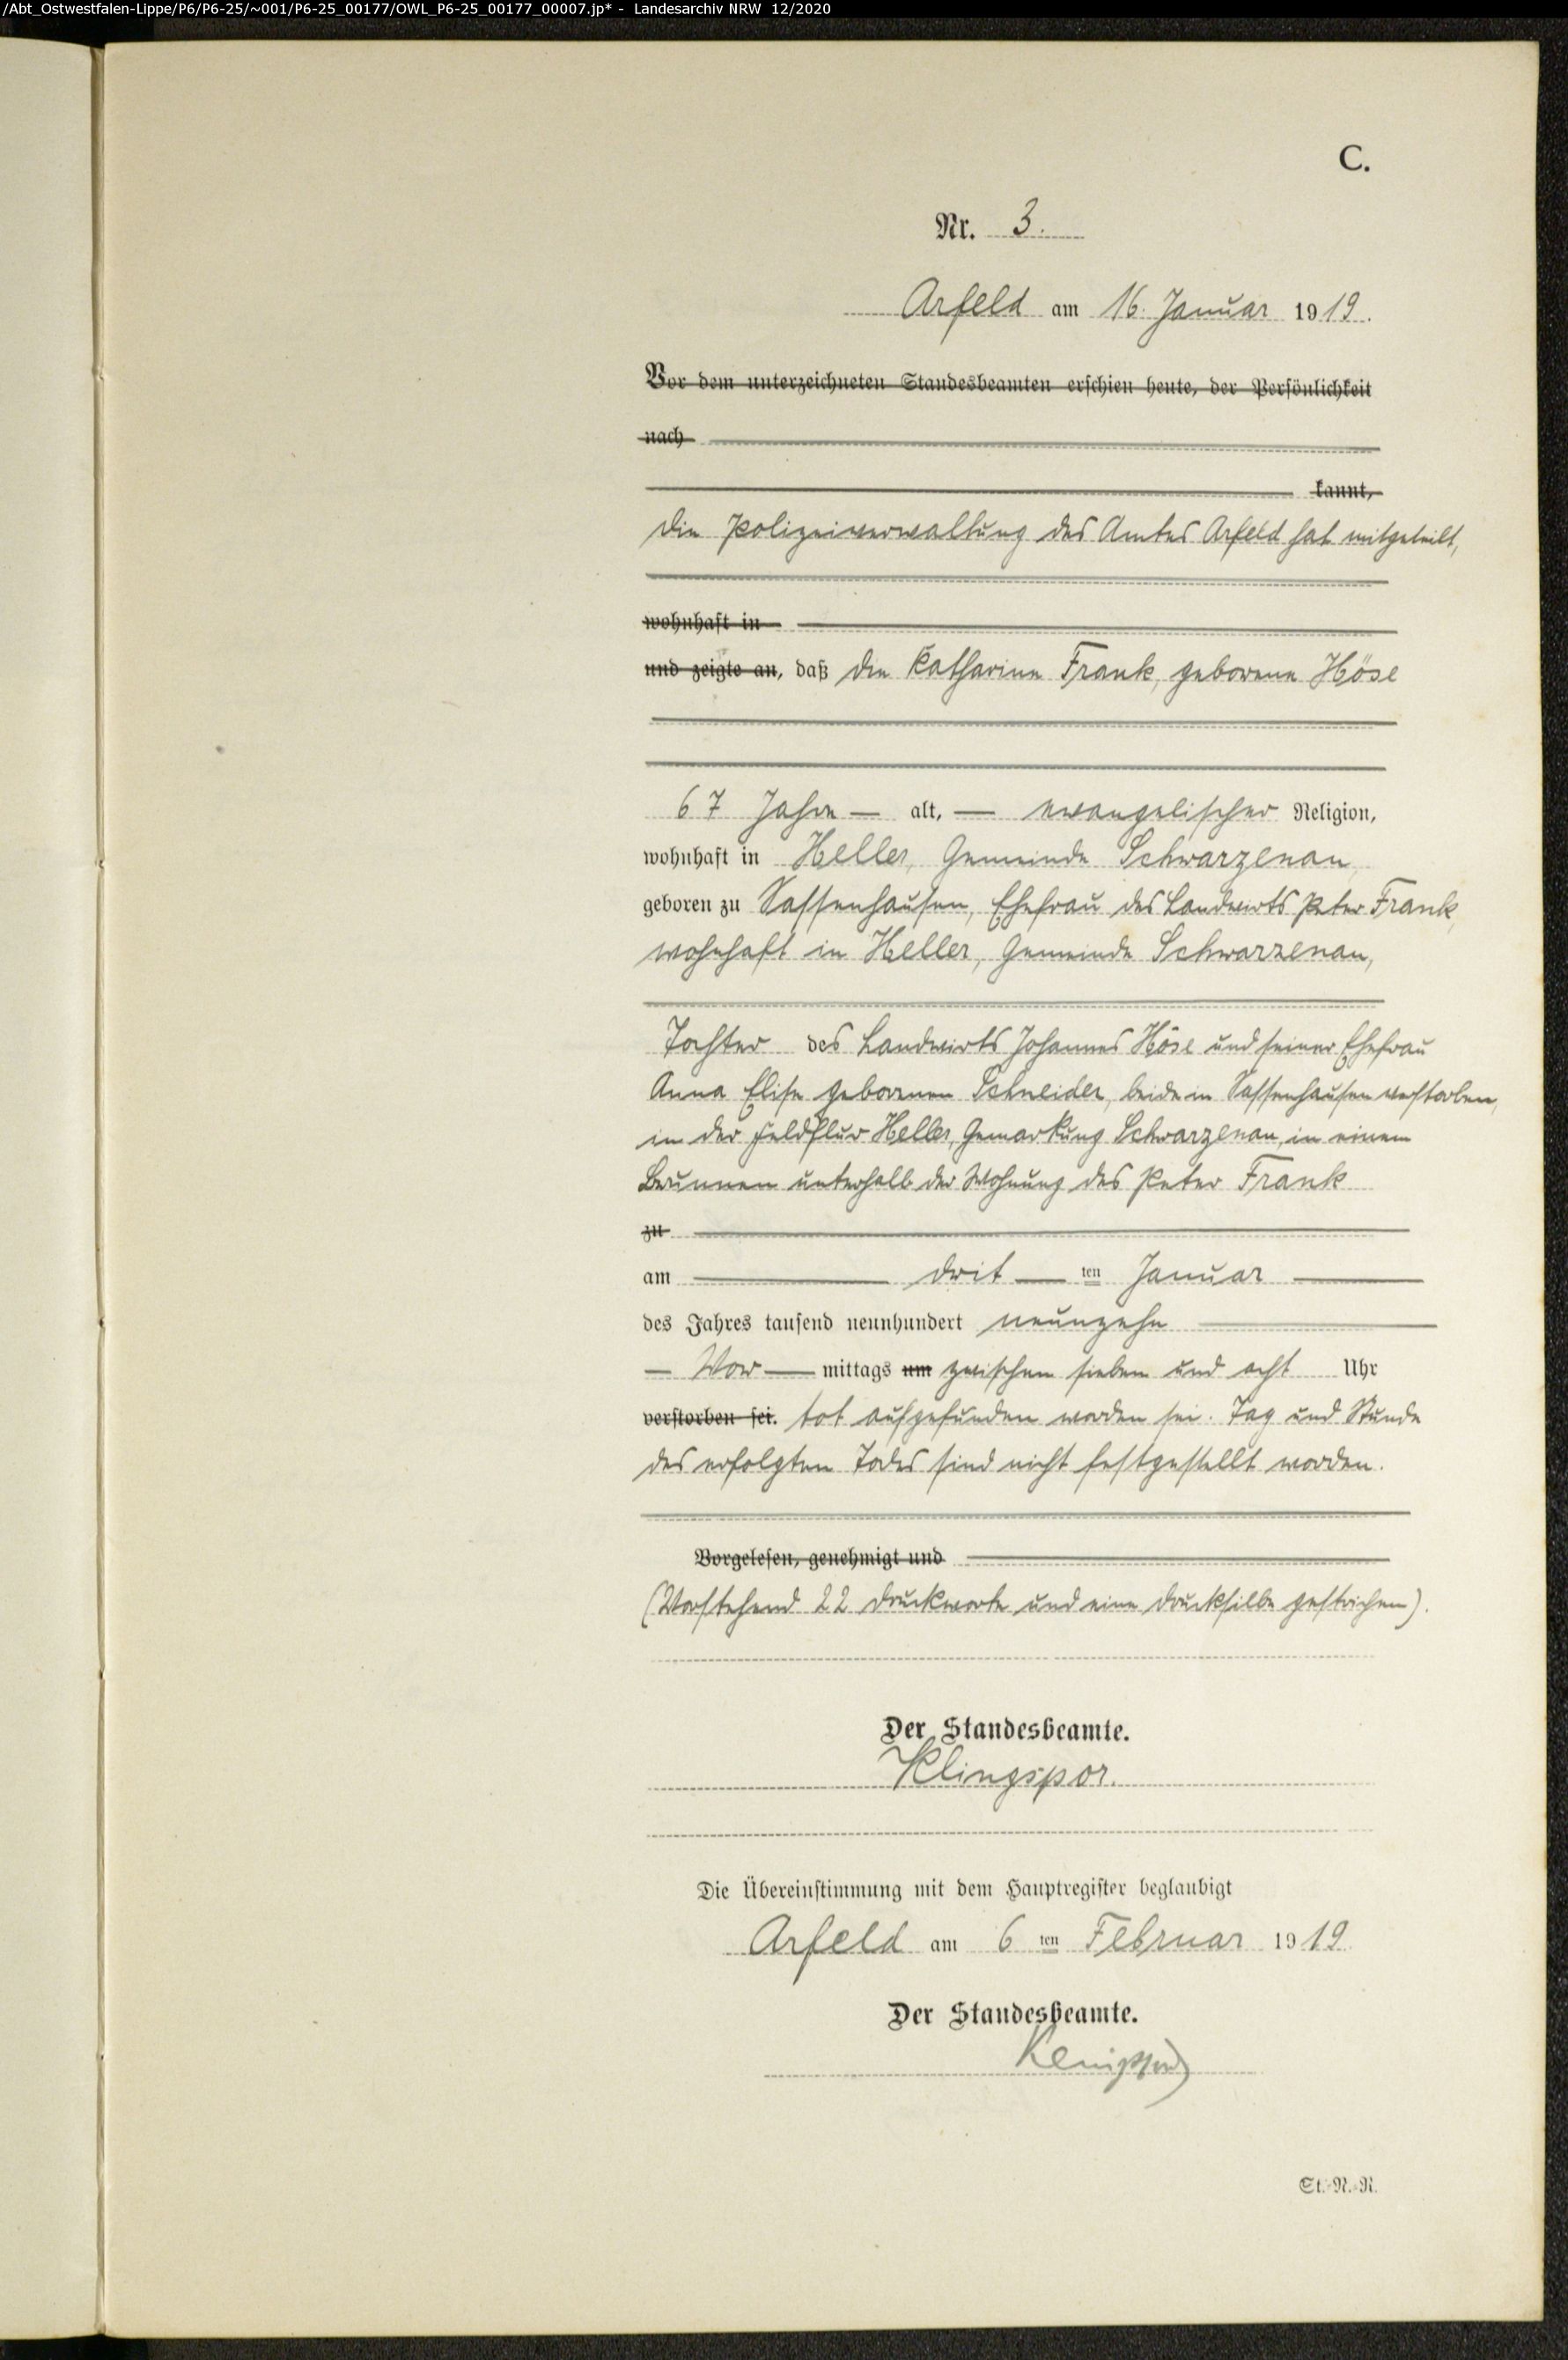 /Abt_Ostwestfalen-Lippe/P6/P6-25/~001/P6-25_00177/OWL_P6-25_00177_00007.jp* - Landesarchiv NRW 12/2020
C.
Nr. 3.
Arfeld am 16. Januar 1919.
Vor dem unterzeichneten Standesbeamten erschien heute, der Persönlichkeit
nach
kannt,
Die Polizeiverwaltung des Amtes Arfeld hat mitgeteilt,
wohnhaft in
und zeigte an, daß die Katharine Frank, geborene Höse
67 Jahre — alt, — evangelischer Religion,
wohnhaft in Heller, Gemeinde Schwarzenau,
geboren zu Sassenhausen, Ehefrau des Landwirts Peter Frank,
wohnhaft in Heller, Gemeinde Schwarzenau,
Tochter des Landwirts Johannes Höse und seiner Ehefrau
Anna Elise geborenen Schneider, beide in Sassenhausen verstorben,
in der Feldflur Heller, Gemarkung Schwarzenau, in einem
Brunnen unterhalb der Wohnung des Peter Frank
zu
am — drit — ten Januar —
des Jahres tausend neunhundert neunzehn
— Vor — mittags um zwischen sieben und acht Uhr
verstorben sei. tot aufgefunden worden sei. Tag und Stunde
des erfolgten Todes sind nicht festgestellt worden.
Vorgelesen, genehmigt und
(Vorstehend 22 Druckworte und eine Drucksilbe gestrichen).
Der Standesbeamte.
Klingspor.
Die Übereinstimmung mit dem Hauptregister beglaubigt
Arfeld am 6 ten Februar 1919
Der Standesbeamte.
St.-N.-R.